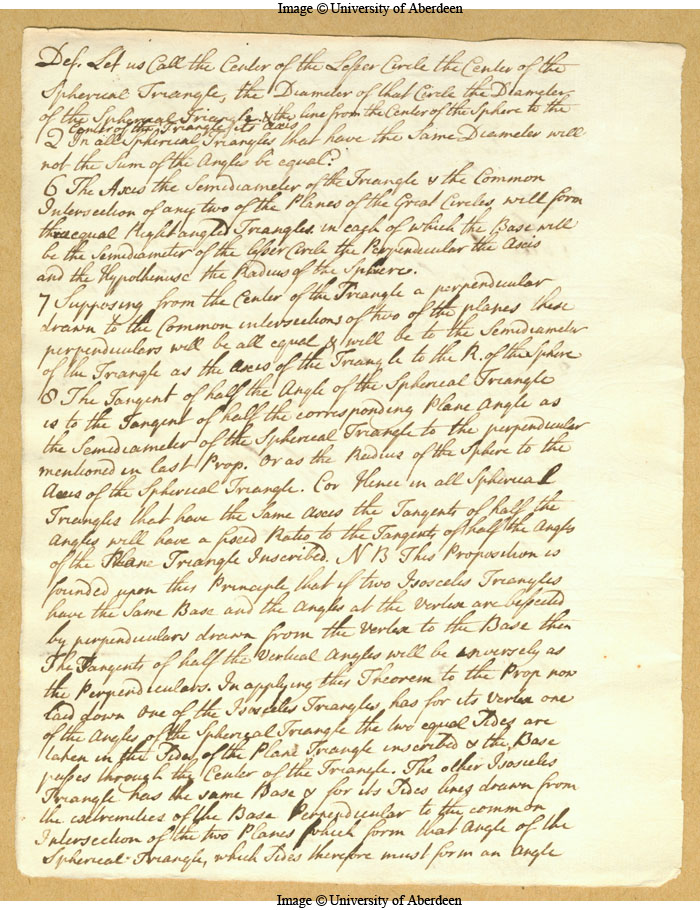 Image © University of Aberdeen
Def. Let us Call the Center of the Lesser Circle the Center of the
Spherical Triangle, the Diameter of that Circle the Diameter
of the Spherical Triangle & the line from the Center of the Sphere to the
Center of the Triangle its Axis
2 In all Spherical Triangles that have the Same Diameter will
not the Sum of the Angles be equal?
6 The Axis the Semidiameter of the Triangle & the Common
Intersection of any two of the Planes of the Great Circles, will form
three equal Right angled Triangles. in each of which the Base will
be the Semidiameter of the lesser Circle the Perpendicular the Axis
and the Hypothenuse the Radius of the Sphere.
7 Supposing from the Center of the Triangle a perpendicular
drawn to the Common intersections of two of the planes these
perpendiculars will be all equal & will be to the Semidiameter
of the Triangle as the axis of the Triangle to the R. of the Sphere
8 The Tangent of half the Angle of the Spherical Triangle
is to the Tangent of half the corresponding Plane Angle as
the Semidiameter of the Spherical Triangle to the perpendicular
mentioned in last Prop. Or as the Radius of the Sphere to the
Axis of the Spherical Triangle. Cor Hence in all Spherical
Triangles that have the Same Axis the Tangents of half the
Angles will have a fixed Ratio to the Tangents of half the Angles
of the Plane Triangle Inscribed. NB This Proposition is
founded upon this Principle that if two Isosceles Triangles
have the Same Base and the Angles at the Vertex are bissected
by perpendiculars drawn from the Vertex to the Base then
The Tangents of half the Vertical Angles will be inversely as
the Perpendiculars. In applying this Theorem to the Prop now
laid down One of the Isosceles Triangles, has for its Vertex one
of the Angles of the Spherical Triangle the two equal Sides are
taken in the Sides of the Plane Triangle inscribed & the Base
passes through the Center of the Triangle. The other Isosceles
Triangle has the same Base & for its Sides lines drawn from
the extremities of the Base Perpendicular to the common
Intersection of the two Planes which form that Angle of the
Spherical Triangle, which Sides therefore must form an Angle
Image © University of Aberdeen